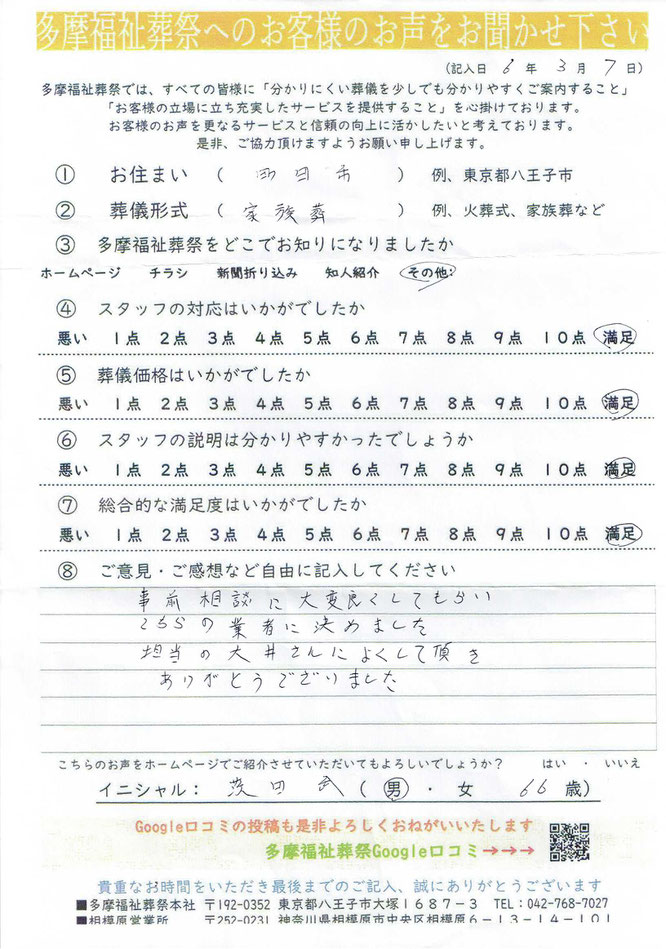 多摩福祉葬祭へのお客様のお声をお聞かせ下さい
(記入日 6 年 3 月 7 日)
多摩福祉葬祭では、すべての皆様に「分かりにくい葬儀を少しでも分かりやすくご案内すること」
「お客様の立場に立ち充実したサービスを提供すること」を心掛けております。
お客様のお声を更なるサービスと信頼の向上に活かしたいと考えております。
是非、ご協力頂けますようお願い申し上げます。
① お住まい ( 市 ) 例、東京都八王子市
② 葬儀形式 ( 家族葬 ) 例、火葬式、家族葬など
③ 多摩福祉葬祭をどこでお知りになりましたか
ホームページ チラシ 新聞折り込み 知人紹介 その他:
④ スタッフの対応はいかがでしたか
悪い 1点 2点 3点 4点 5点 6点 7点 8点 9点 10点 満足
⑤ 葬儀価格はいかがでしたか
悪い 1点 2点 3点 4点 5点 6点 7点 8点 9点 10点 満足
⑥ スタッフの説明は分かりやすかったでしょうか
悪い 1点 2点 3点 4点 5点 6点 7点 8点 9点 10点 満足
⑦ 総合的な満足度はいかがでしたか
悪い 1点 2点 3点 4点 5点 6点 7点 8点 9点 10点 満足
⑧ ご意見・ご感想など自由に記入してください
事前相談に大変良くしてもらい
こちらの業者に決めました
担当の大井さんによくして頂き
ありがとうございました
こちらのお声をホームページでご紹介させていただいてもよろしいでしょうか? はい ・ いいえ
イニシャル: 武 ( 男 ・ 女 66 歳)
Google口コミの投稿も是非よろしくおねがいいたします
多摩福祉葬祭Google口コミ→→→
貴重なお時間をいただき最後までのご記入、誠にありがとうございます
■多摩福祉葬祭本社 〒192-0352 東京都八王子市大塚1687-3 TEL:042-768-7027
■相模原営業所 〒252-0231 神奈川県相模原市中央区相模原6-13-14-101